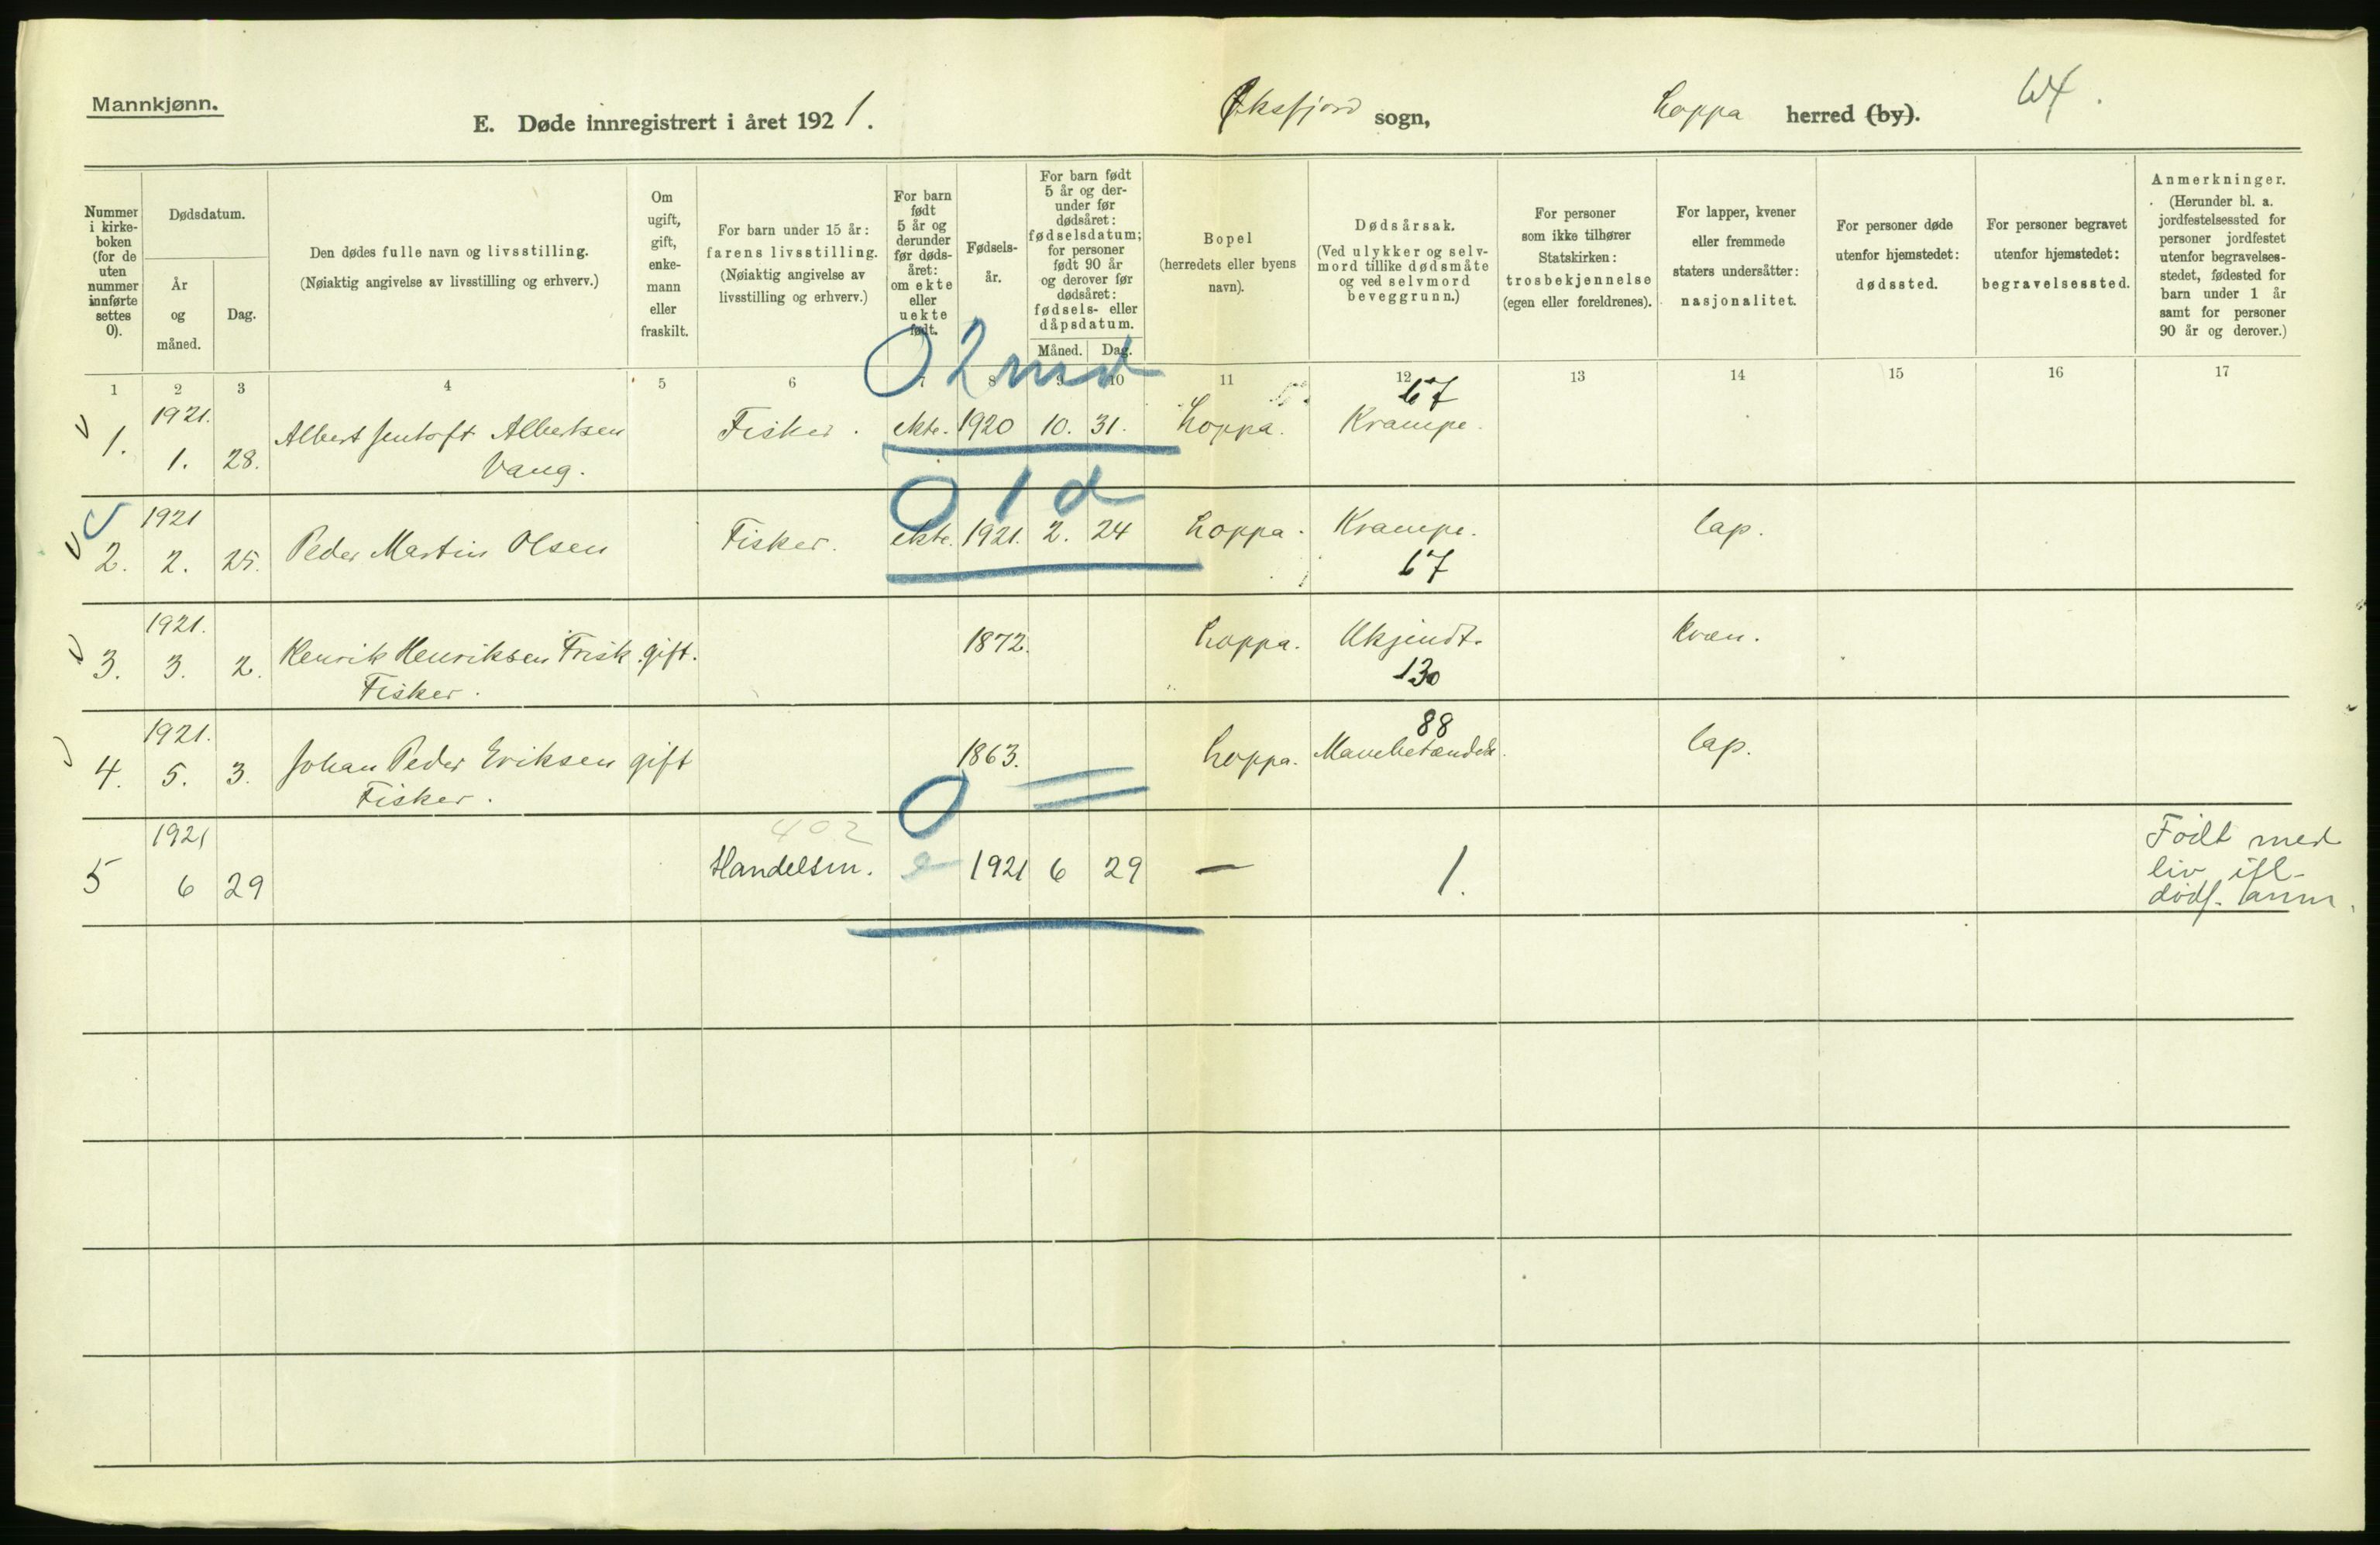 Mannkjønn.
E. Døde innregistrert i året 1921.
Øksfjord sogn,
Loppa herred (by).
Nummer i kirke-boken (for de uten nummer innførte settes 0).
Dødsdatum.
År og måned.
Dag.
Den dødes fulle navn og livsstilling.
(Nøiaktig angivelse av livsstilling og erhverv.)
Om ugift, gift, enke-mann eller fraskilt.
For barn under 15 år:
farens livsstilling.
(Nøiaktig angivelse av
livsstilling og erhverv.)
For barn
født
5 år og
derunder
før døds-
året:
om ekte
eller
uekte
født.
Fødsels-
år.
For barn født
5 år og der-
under før
dødsåret:
fødselsdatum;
for personer
født 90 år
og derover før
dødsåret:
fødsels- eller
dåpsdatum.
Måned. Dag.
Bopel
(herredets eller byens
navn).
Dødsårsak.
(Ved ulykker og selv-
mord tillike dødsmåte
og ved selvmord
beveggrunn.)
For personer
som ikke tilhører
Statskirken:
trosbekjennelse
(egen eller foreldrenes).
For lapper, kvener
eller fremmede
staters undersåtter:
nasjonalitet.
For personer døde
utenfor hjemstedet:
dødssted.
For personer begravet
utenfor hjemstedet:
begravelsessted.
Anmerkninger.
(Herunder bl. a.
jordfestelsessted for
personer jordfestet
utenfor begravelses-
stedet, fødested for
barn under 1 år
samt for personer
90 år og derover.)
1 2 3 4 5 6 7 8 9 10 11 12 13 14 15 16 17
0 2 md
67
1921.
1. 1. 28. Albert Jentoft Albertsen Fisker. ekte. 1920 10. 31. Loppa. Krampe.
Vang.
0 1 d
1921
2. 2. 25. Peder Martin Olsen Fisker. ekte. 1921. 2. 24 Loppa. Krampe. lap.
67
1921.
3. 3. 2. Henrik Henriksen Frisk. gift. 1872. Loppa. Ukjendt. kvæn.
Fisker. 130
1921. 88
4. 5. 3. Johan Peder Eriksen gift 1863. Loppa. lap.
Fisker.
0
402
1921
5 6 29 Handelsm. e 1921 6 29 — 1.
Født med
liv ifl.
dødf. anm.